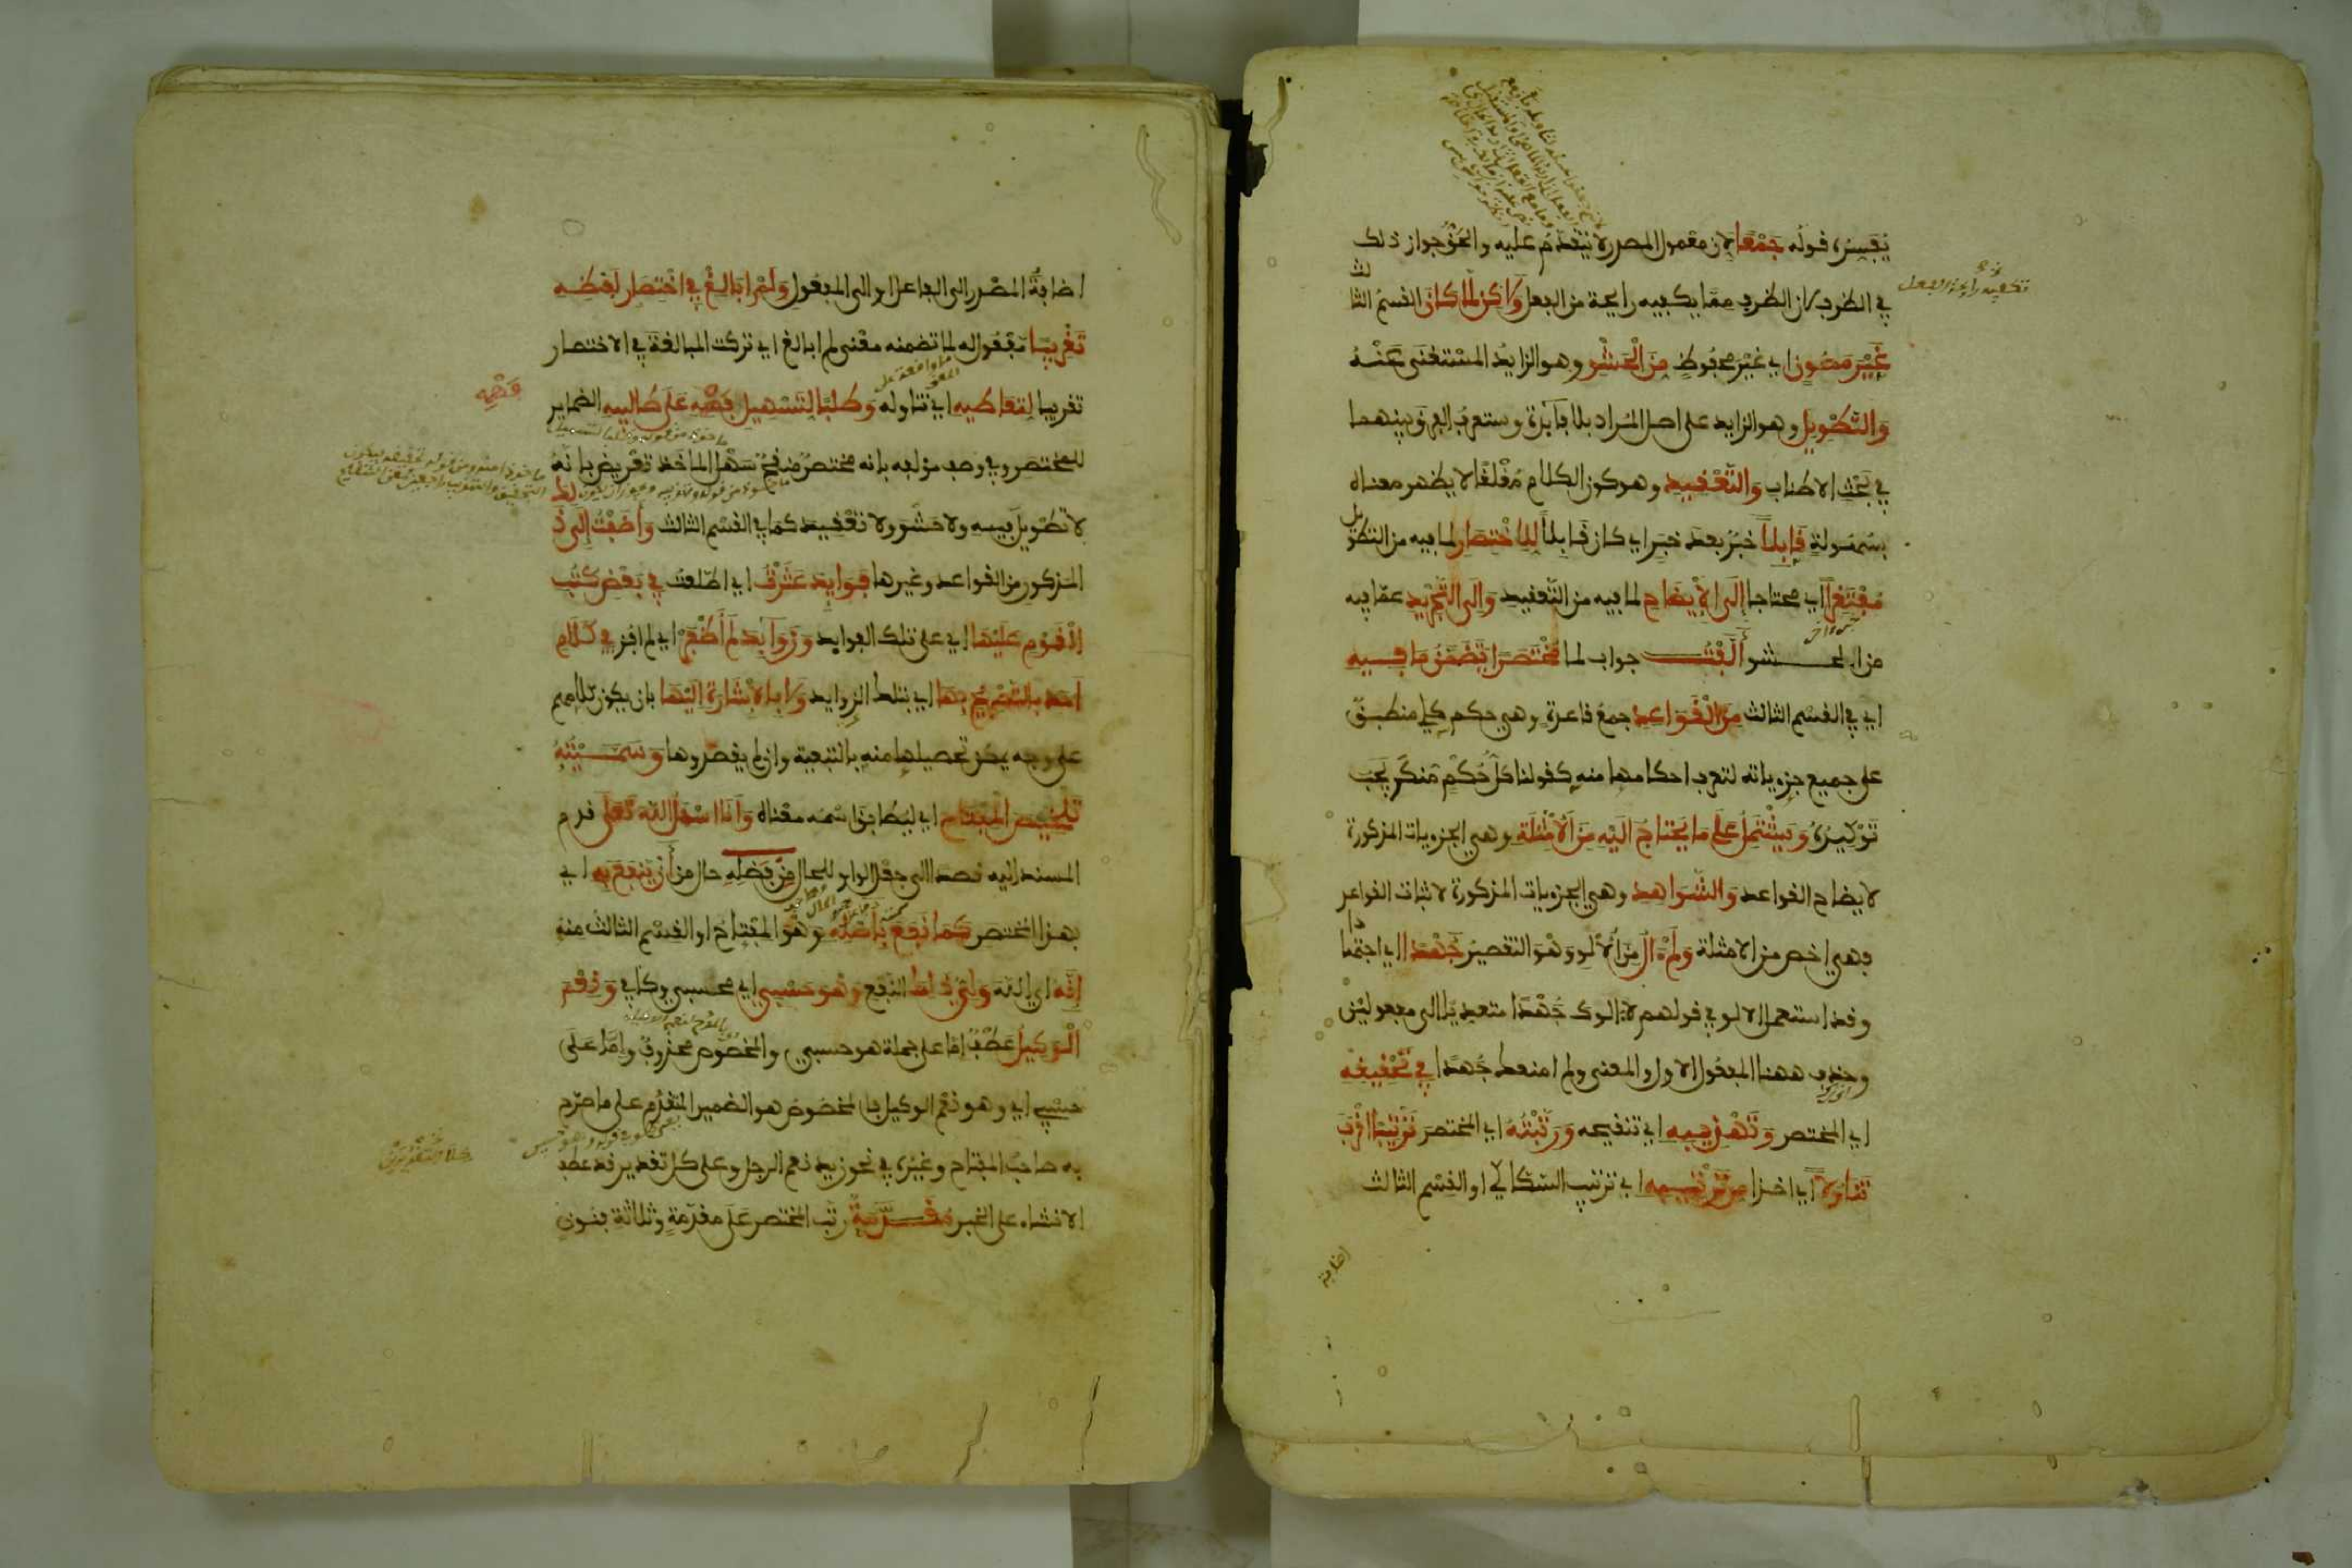 يفسره قوله جمعا لان معمول المصدر لا يتقدم عليه والحق جواز ذلك
في الظرف لان الظرف مما يكفيه رايحة من الفعل ولكن لما كان القسم الثالث
تكفيه رايحة الفعل
غير مصون اي غير محفوظ من الحشو وهو الزايد المستغنى عنه
والتطويل وهو الزايد على اصل المراد بلا فايدة وستعرف الفرق بينهما
في بحث الاطناب والتعقيد وهو كون الكلام مغلقا لا يظهر معناه
بسهولة قابلا خبر بعد خبر اي كان قابلا للاختصار لما فيه من التطويل
مفتقرا اي محتاجا الى الايضاح لما فيه من التعقيد والى التجريد عما فيه
من الحشو ألفت جواب لما مختصرا يتضمن ما فيه
اي في القسم الثالث من القواعد جمع قاعدة وهي حكم كلي منطبق
على جميع جزوياته لتعرف احكامها منه كقولنا كل حكم منكر يجب
توكيده ويشتمل على ما يحتاج اليه من الامثلة وهي الجزويات المذكورة
لايضاح القواعد والشواهد وهي الجزويات المذكورة لاثبات القواعد
فهي اخص من الامثلة ولم آل من الالو وهو التقصير جهدا اي اجتهادا
وقد استعمل الالو في قولهم لا الوك جهدا متعديا الى مفعولين
وحذف ههنا المفعول الاول والمعنى ولم امنعك جهدا في تحقيقه
اي المختصر وتهذيبه اي تنقيحه ورتبته اي المختصر ترتيبا اقرب
تناولا اي اخذا من ترتيبه اي ترتيب السكاكي او القسم الثالث
اضافة
اضافة المصدر الى الفاعل او الى المفعول ولم ابالغ في اختصار لفظه
تقريبا مفعول له لما تضمنه معنى لم ابالغ اي تركت المبالغة في الاختصار
تقريبا لتعاطيه اي تناوله وطلبا لتسهيل فهمه على طالبيه الضماير
فهمه
للمختصر وفي وصف مؤلفه بانه مختصر منقح سهل الماخذ تعريض بانه
لا تطويل فيه ولا حشو ولا تعقيد كما في القسم الثالث واضفت الى ذلك
المذكور من القواعد وغيرها فوايد عثرت اي اطلعت في بعض كتب
القوم عليها اي على تلك الفوايد وزوايد لم أظفر اي لم افز في كلام
احد بالتصريح بها اي بتلك الزوايد ولا بالاشارة اليها بان يكون كلامهم
على وجه يمكن تحصيلها منه بالتبعية وان لم يقصدوها وسميته
تلخيص المفتاح اي ليطابق اسمه معناه وانا اسأل الله تعلى قدم
المسند اليه قصدا الى جعل الواو للحال من فضله حال من أن ينفع به اي
بهذا المختصر كما نفع باصله وهو المفتاح او القسم الثالث منه
انه اي الله ولي ذلك النفع وهو حسبي اي محسبي وكافي ونعم
الوكيل عطف اما على جملة هو حسبي والمخصوص محذوف واما على
حسبي اي وهو نعم الوكيل فالمخصوص هو الضمير المتقدم على ما صرح
به صاحب المفتاح وغيره في نحو زيد نعم الرجل وعلى كل تقدير قد عطف
الانشاء على الخبر مقدمة رتب المختصر على مقدمة وثلاثة فنون